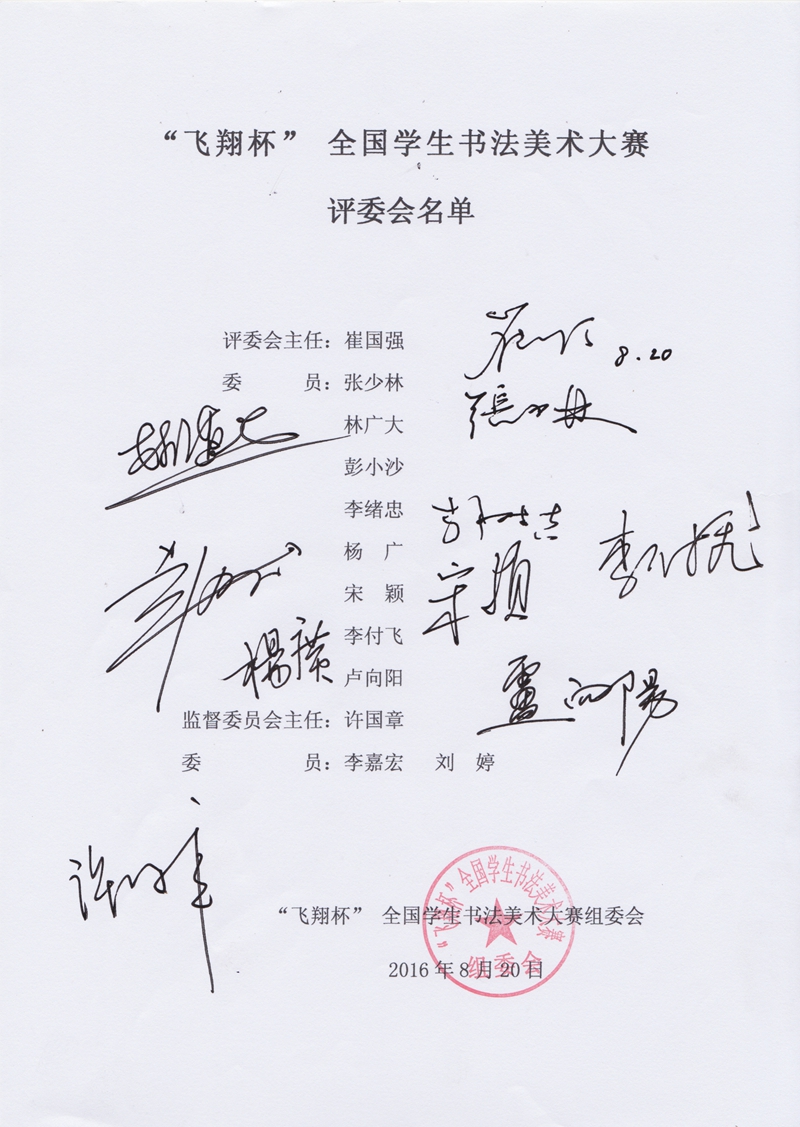 “飞翔杯” 全国学生书法美术大赛
评委会名单
评委会主任：崔国强
8.20
委 员：张少林
張少林
林广大
彭小沙
李绪忠
杨 广
宋 颖
宋颖
李付飞
楊廣
卢向阳
盧向陽
监督委员会主任：许国章
委 员：李嘉宏 刘 婷
“飞翔杯”全国学生书法美术大赛
组委会
“飞翔杯” 全国学生书法美术大赛组委会
2016 年 8 月 20 日